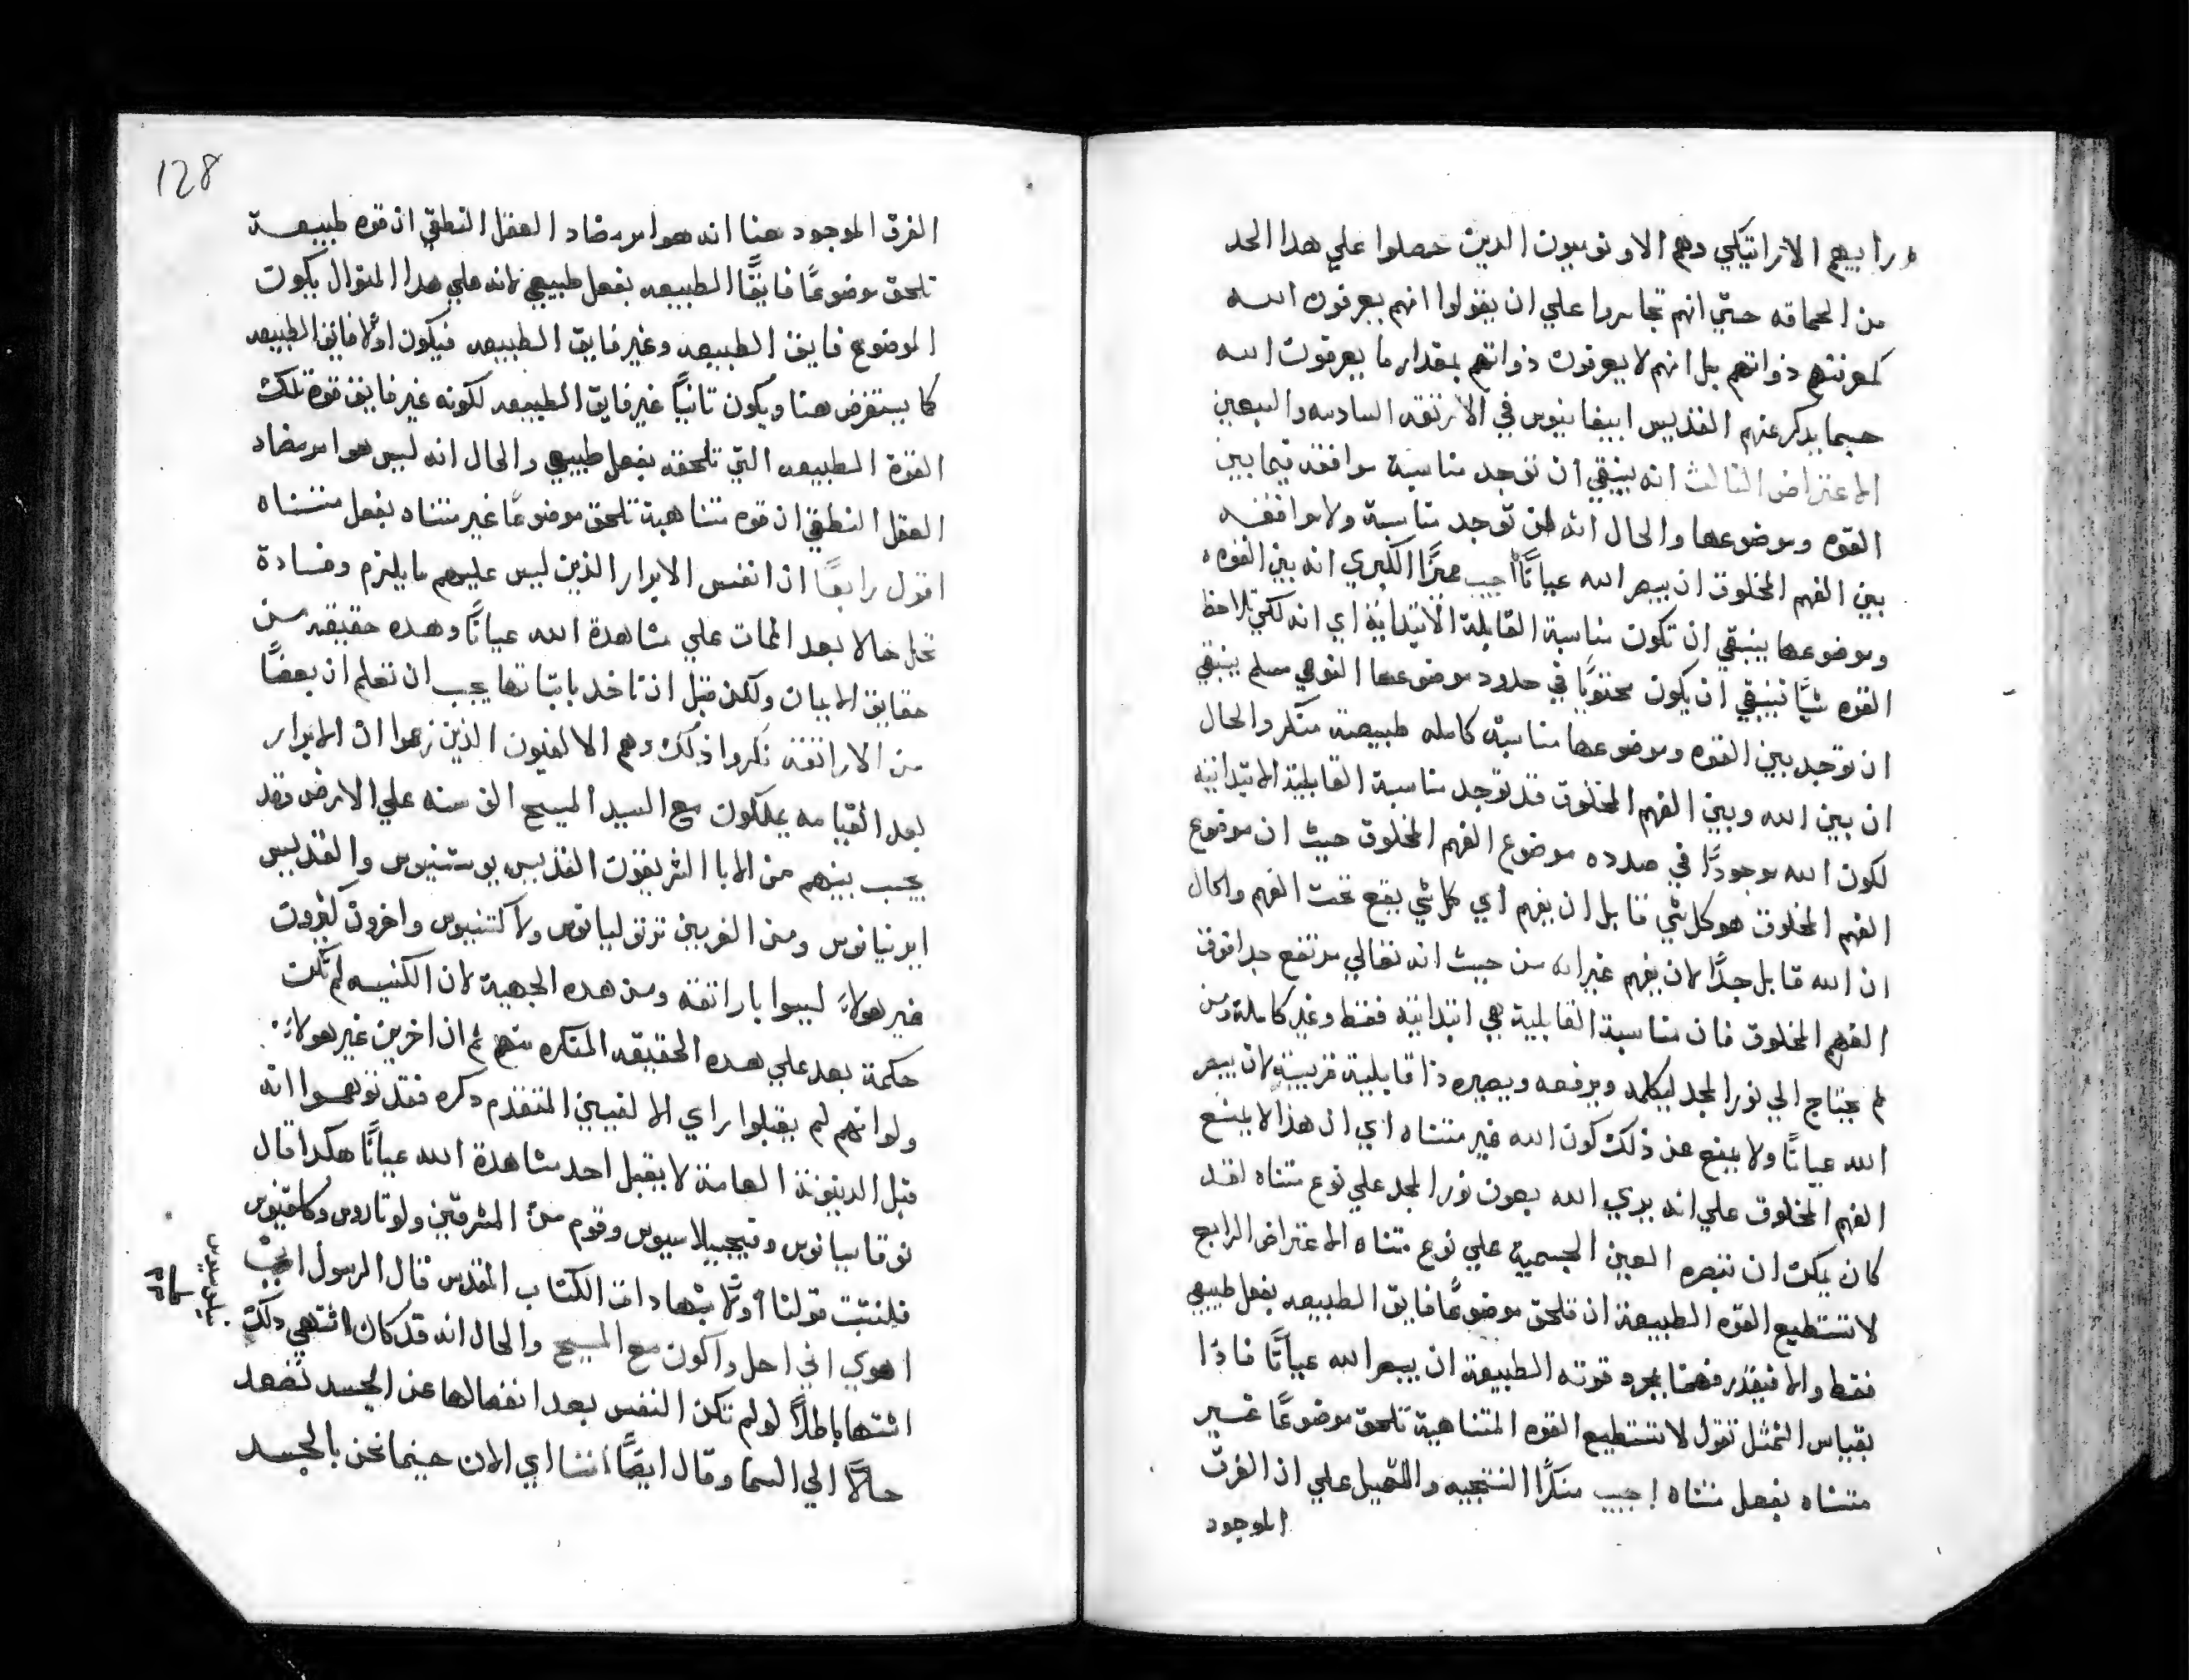 ورايهم الاراتيكي وهم الاونوميون الدين حصلوا علي هدا الحد
من الحماقه حتي انهم تجاسروا علي ان يقولوا انهم يعرفون الله
كمعرفتهم ذواتهم بل انهم لا يعرفون ذواتهم بمقدار ما يعرفون الله
حسبما يدكر عنهم القديس ابيفانيوس في الارتقه السادسه والسبعين
الاعتراض الثالث انه ينبغي ان توجد مناسبة موافقه فيما بين
القوه وموضوعها والحال انه لن توجد مناسبة ولا موافقه
بين الفهم المخلوق ان يبصر الله عيانًا اجيب مميزًا الكبري انه بين القوه
وموضوعها ينبغي ان تكون مناسبة القابلة الابتدايية اي انه لكي تلاحظ
القوه شيًا فينبغي ان يكون محتويًا في حدود موضوعها النوعي مسلم ينبغي
ان توجد بين القوه وموضوعها مناسبة كامله طبيعية منكر والحال
ان بين الله وبين الفهم المخلوق قد توجد مناسبة القابلية الابتدائيه
لكون الله موجودًا في صدده موضوع الفهم المخلوق حيث ان موضوع
الفهم المخلوق هو كل شي قابل ان يفهم اي كل شي يقع تحت الفهم والحال
ان الله قابل جدًا لان يفهم غير انه من حيث انه تعالي مرتفع جدا فوق
الفهم المخلوق فان مناسبة القابلية هي ابتدائية فقط وغير كاملة ومن
ثم يحتاج الي نور المجد ليكمله ويرفعه ويصيره ذا قابلية قريبية لان يبصر
الله عيانًا ولا يمنع عن ذلك كون الله غير متناه اي ان هذا لا يمنع
الفهم المخلوق علي انه يري الله بعون نور المجد علي نوع متناه لقد
كان يمكن ان تبصره العين الجسمية علي نوع متناه الاعتراض الرابع
لا تستطيع القوه الطبيعية ان تلحق موضوعًا فايق الطبيعه بفعل طبيعي
فقط والا فيقدر فهمنا بمجرد قوته الطبيعية ان يبصر الله عيانًا فاذًا
بقياس التمثل نقول لا تستطيع القوه المتناهية تلحق موضوعًا غير
متناه بفعل متناه اجيب منكرًا النتيجيه والتمثيل علي ان الفرق
الموجود
128
الفرق الموجود هنا انه هو امر مضاد العقل النطقي ان قوه طبيعية
تلحق موضوعًا فايقًا الطبيعه بفعل طبيعي لانه علي هدا المنوال يكون
الموضوع فايق الطبيعه وغير فايق الطبيعه فيكون اولًا فايق الطبيعه
كما يستفرض هنا ويكون تانيًا غير فايق الطبيعه لكونه غير فايق قوة تلك
القوة الطبيعه التي تلحقه بفعل طبيعي والحال انه ليس هو امر مضاد
العقل النطقي ان قوه متناهية تلحق موضوعًا غير متناه بفعل متناه
اقول رابعًا ان انفس الابرار الذين ليس عليهم ما يلزم وفادة
تحل حالا بعد الممات علي مشاهدة الله عيانًا وهده حقيقه من
حقايق الايمان ولكن قبل ان ناخد باتباتها يجب ان نعلم ان بعضًا
من الاراتقة نكروا ذلك وهم الالفيون الذين زعموا ان الابرار
بعد القيامه يملكون مع السيد المسيح الف سنه علي الارض وقد
يحسب بينهم من الابا الشرقيون القديس يوستينوس والقديس
ايرنيانوس ومن الغربين ترتوليانوس ولاكتنيوس واخرون كثيرون
غير هولاء ليسوا باراتقة ومن هده الجهية لان الكنيسه لم تكن
حكمة بعد علي هده الحقيقه المنكره منهم ثم ان اخرين غير هولاء
ولو انهم لم يقبلوا راي الالفيين المتقدم دكره فقد توهموا انه
قبل الدينونة العامة لا يقبل احد مشاهدة الله عيانًا هكدا قال
نوقاسيانوس وقيجيلاسيوس وقوم من المشرقيين ولوتاروس وكالفينوس
فلنتبت قولنا أولًا بشهادات الكتاب المقدس قال الرسول
اهوي اني احل واكون مع المسيح والحال انه قد كان اشتهي دلك
اشتها باطلًا لو لم تكن النفس بعد انفصالها عن الجسد تصعد
حالًا الي السما وقال ايضًا اننا اي الان حينما نحن بالجسد